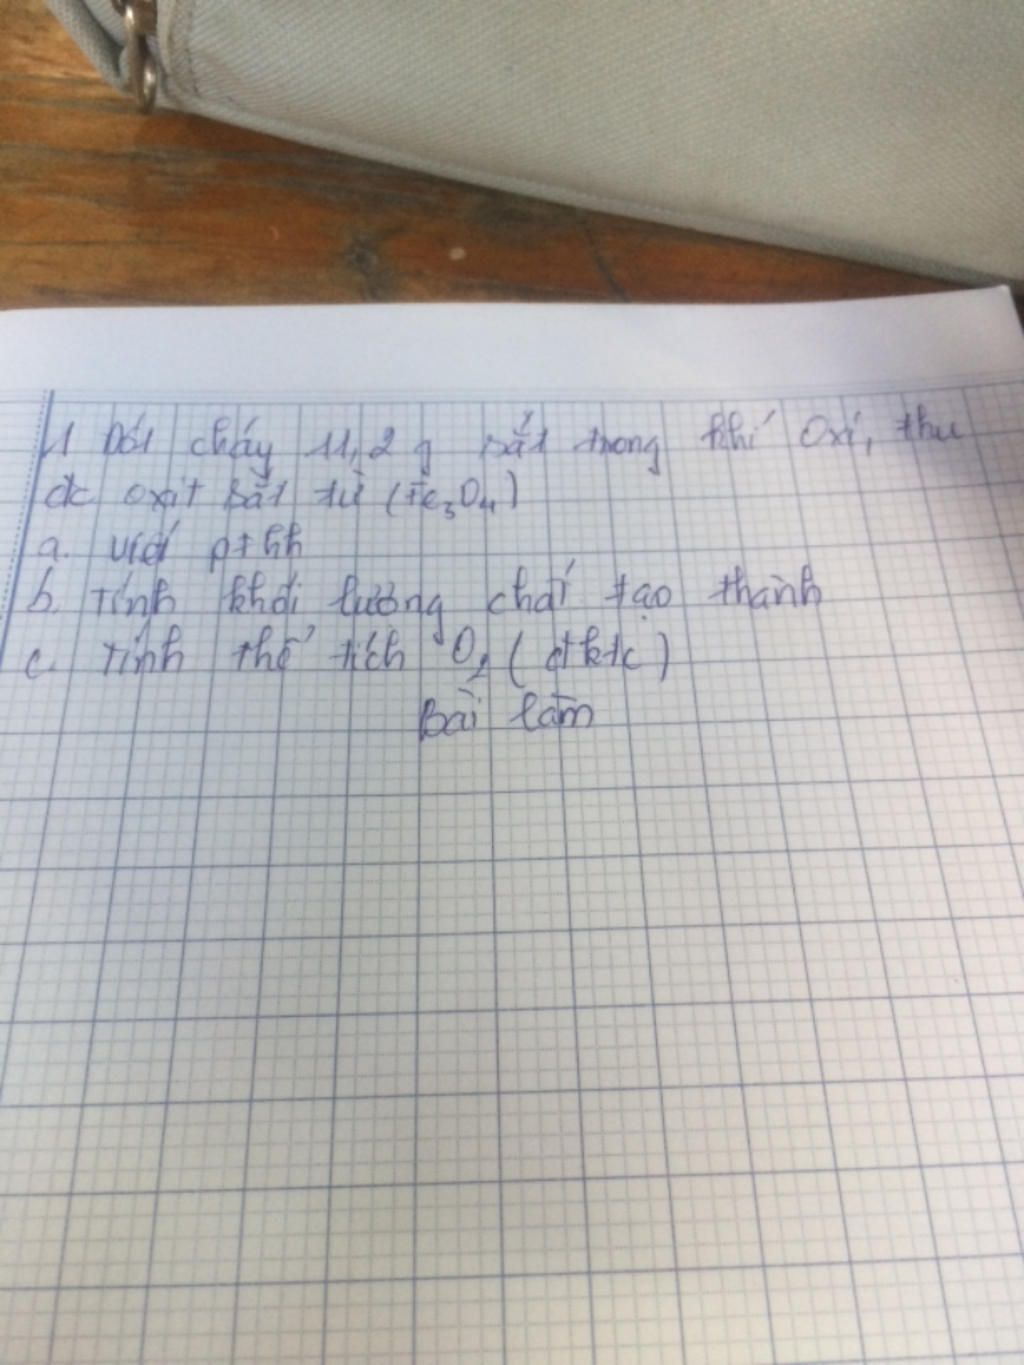 1 Đốt cháy 11,2 g sắt trong khí oxi, thu
đc oxit sắt từ (Fe₃O₄)
a. viết pthh
b. Tính khối lượng chất tạo thành
c. Tính thể tích O₂ (đktc)
Bài làm